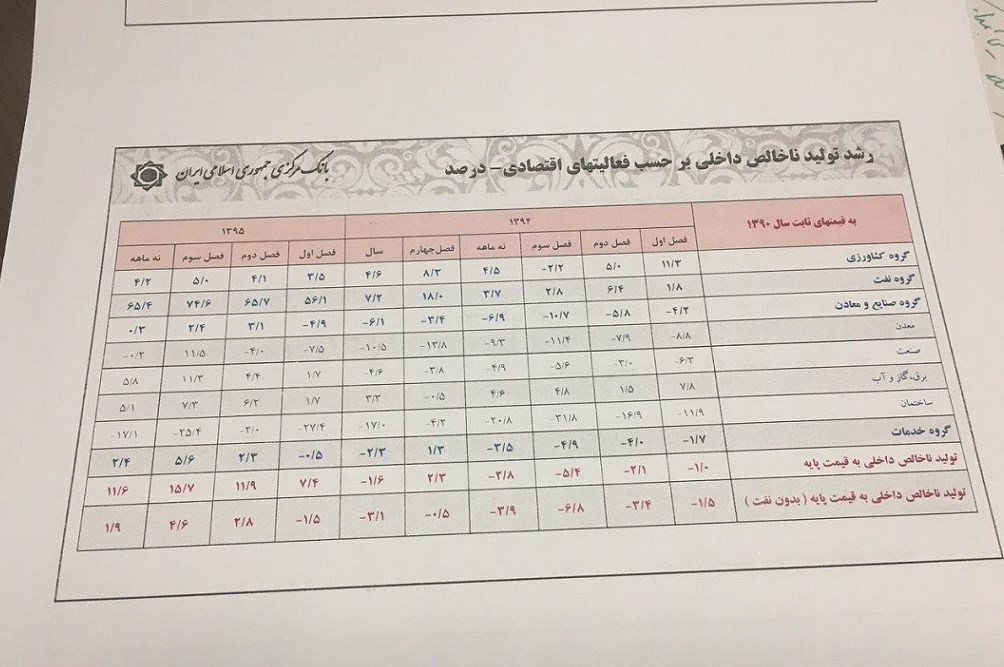 رشد تولید ناخالص داخلی بر حسب فعالیتهای اقتصادی- درصد بانک مرکزی جمهوری اسلامی ایران
به قیمتهای ثابت سال ۱۳۹۰ ۱۳۹۴ ۱۳۹۵
فصل اول فصل دوم فصل سوم نه ماهه فصل چهارم سال فصل اول فصل دوم فصل سوم نه ماهه
گروه کشاورزی ۱۱/۳ ۵/۰ -۲/۲ ۴/۵ ۸/۳ ۴/۶ ۳/۵ ۴/۱ ۵/۰ ۴/۲
گروه نفت ۱/۸ ۶/۴ ۲/۸ ۳/۷ ۱۸/۰ ۷/۲ ۵۶/۱ ۶۵/۷ ۷۴/۶ ۶۵/۴
گروه صنایع و معادن -۴/۲ -۵/۸ -۱۰/۷ -۶/۹ -۳/۴ -۶/۱ -۴/۹ ۳/۱ ۲/۴ ۰/۳
معدن -۸/۸ -۷/۹ -۱۱/۴ -۹/۳ -۱۳/۸ -۱۰/۵ -۷/۵ -۴/۰ ۱۱/۵ -۰/۲
صنعت -۶/۳ -۳/۰ -۵/۶ -۴/۹ -۳/۸ -۴/۶ ۱/۷ ۴/۴ ۱۱/۳ ۵/۸
برق،گاز و آب ۷/۸ ۱/۵ ۴/۸ ۴/۶ -۰/۵ ۳/۳ ۱/۷ ۶/۲ ۷/۳ ۵/۱
ساختمان -۱۱/۹ -۱۶/۹ -۳۱/۸ -۲۰/۸ -۴/۲ -۱۷/۰ -۲۷/۴ -۳/۰ -۲۵/۴ -۱۷/۱
گروه خدمات -۱/۷ -۴/۰ -۴/۹ -۳/۵ ۱/۳ -۲/۳ -۰/۵ ۲/۳ ۵/۶ ۲/۴
تولید ناخالص داخلی به قیمت پایه -۱/۰ -۲/۱ -۵/۴ -۲/۸ ۲/۳ -۱/۶ ۷/۴ ۱۱/۹ ۱۵/۷ ۱۱/۶
تولید ناخالص داخلی به قیمت پایه ( بدون نفت ) -۱/۵ -۳/۴ -۶/۸ -۳/۹ -۰/۵ -۳/۱ -۱/۵ ۲/۸ ۴/۶ ۱/۹